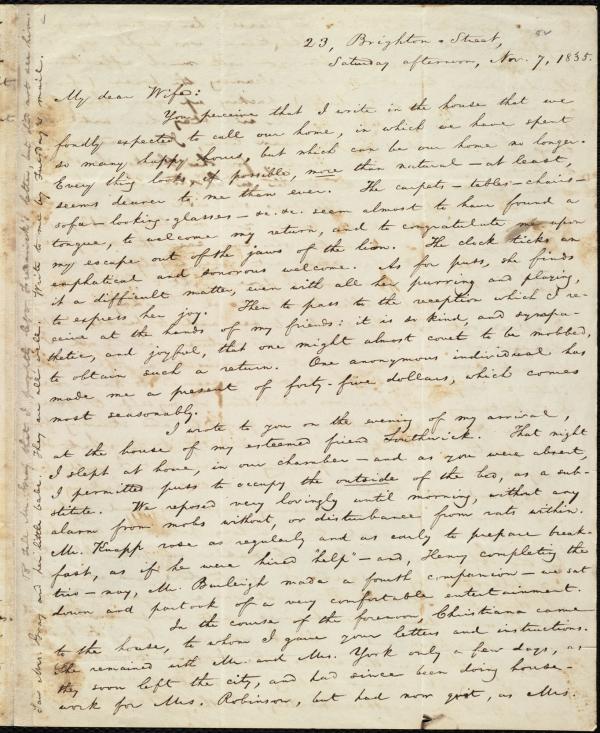 23, Brighton-Street,
Saturday afternoon, Nov. 7, 1835.
My dear Wife:
You perceive that I write in the house that we
fondly expected to call our home, in which we have spent
so many happy hours, but which can be our home no longer.
Every thing looks, if possible, more than natural—at least,
seems dearer to me than ever. The carpets—tables—chairs—
sofa—looking-glasses—&c. &c. seem almost to have found a
tongue, to welcome my return, and to congratulate me upon
my escape out of the jaws of the lion. The clock ticks an
emphatical and sonorous welcome. As for puss, she finds
it a difficult matter, even with all her purring and playing,
to express her joy. Then to pass to the reception which I re-
ceive at the hands of my friends: it is so kind, and sympa-
thetic, and joyful, that one might almost covet to be mobbed,
to obtain such a return. One anonymous individual has
made me a present of forty-five dollars, which comes
most seasonably.
I wrote to you on the evening of my arrival,
at the house of my esteemed friend Southwick. That night
I slept at home, in our chamber—and as you were absent,
I permitted puss to occupy the outside of the bed, as a sub-
stitute. We reposed very lovingly until morning, without any
alarm from mobs without, or disturbance from rats within.
Mr. Knapp rose as regularly and as early to prepare break-
fast, as if he were hired "help"—and, Henry completing the
trio—nay, Mr. Burleigh made a fourth companion—we sat
down and partook of a very comfortable entertainment.
In the course of the forenoon, Christiana came
to the house, to whom I gave your letters and instructions.
She remained with Mr. and Mrs. York only a few days, as
they soon left the city, and had since been doing house-
work for Mrs. Robinson, but had now quit, as Mrs.
letter, but did not see him
saw Mrs. Gray and her little babe. They are all well. Write to me by Tuesday's mail.